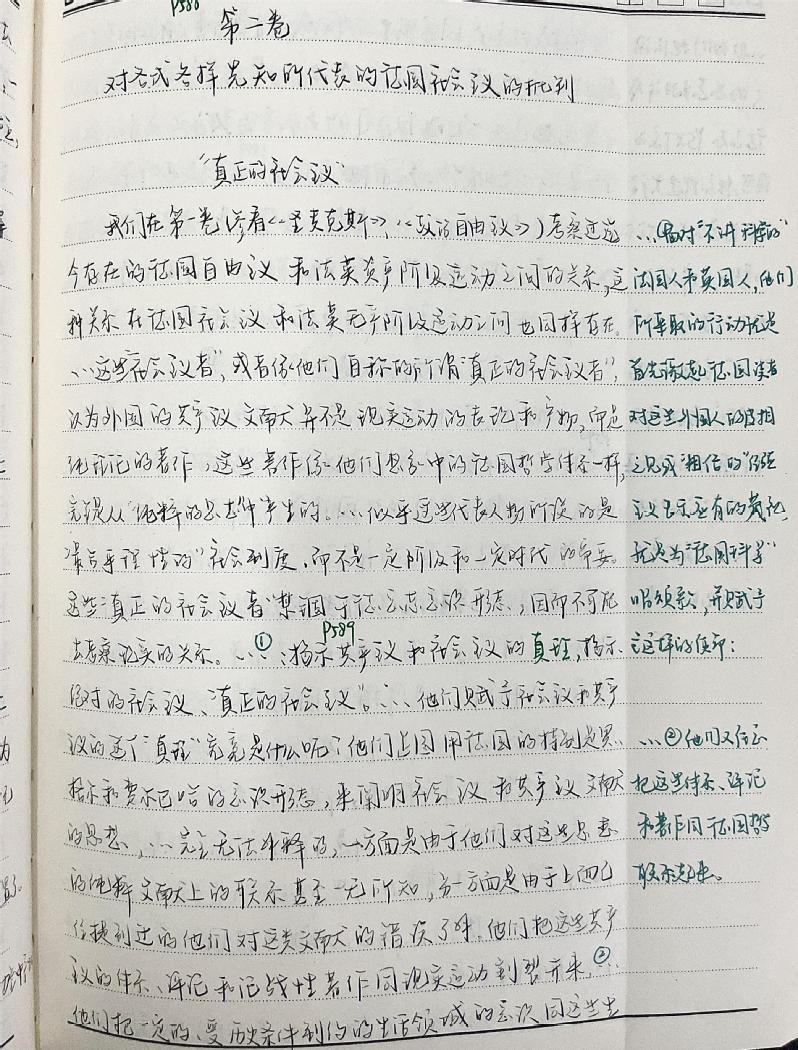 P588
第二卷
对各式各样先知所代表的德国社会主义的批判
“真正的社会主义”
我们在第一卷(参看《圣麦克斯》,《政治自由主义》)考察过迄
今存在的德国自由主义和法英资产阶级运动之间的关系,这
种关系在德国社会主义和法英无产阶级运动之间也同样存在。
…这些“社会主义者”,或者像他们自称的所谓“真正的社会主义者”,
认为外国的共产主义文献并不是现实运动的表现和产物,而是
纯理论的著作,这些著作像他们想象中的德国哲学体系一样,
完全是从“纯粹的思想”中产生的。…似乎这些代表人物所谈的是
“最合乎理性的”社会制度,而不是一定阶级和一定时代的需要。
这些“真正的社会主义者”禁锢于德意志意识形态,因而不可能
去考察现实的关系。…①…揭示共产主义和社会主义的真理,揭示
P589
绝对的社会主义、“真正的社会主义”。…他们赋予社会主义和共产
主义的这个“真理”究竟是什么呢?他们企图用德国的特别是黑
格尔和费尔巴哈的意识形态,来阐明社会主义和共产主义文献
的思想,…完全无法解释的,一方面是由于他们对这些思想
的纯粹文献上的联系甚至一无所知,另一方面是由于上面已
经提到过的他们对这类文献的错误了解。他们把这些共产
主义的体系、评论和论战性著作同现实运动割裂开来,②…
他们把一定的、受历史条件制约的生活领域的意识同这些生
…①面对“不讲科学的”
法国人和英国人,他们
所采取的行动就是
首先激起德国读者
对这些外国人的皮相
之见或“粗俗的”经验
主义表示应有的蔑视,
就是为“德国科学”
唱颂歌,并赋予
这样的使命:
…②他们又任意
把这些体系、评论
和著作同德国哲学
联系起来。